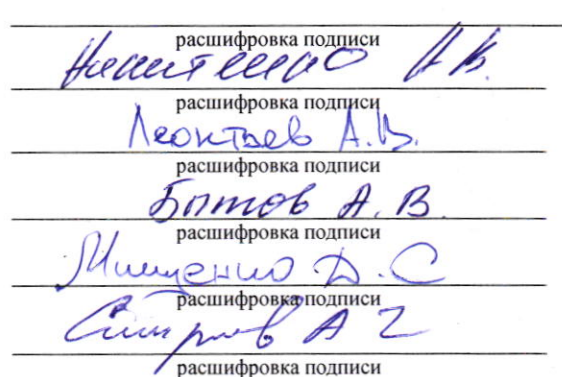 расшифровка подписи
Никитенко А.В.
расшифровка подписи
Леонтьев А.В.
расшифровка подписи
Бытов А.В.
расшифровка подписи
Мищенко Д.С
расшифровка подписи
А Г
расшифровка подписи